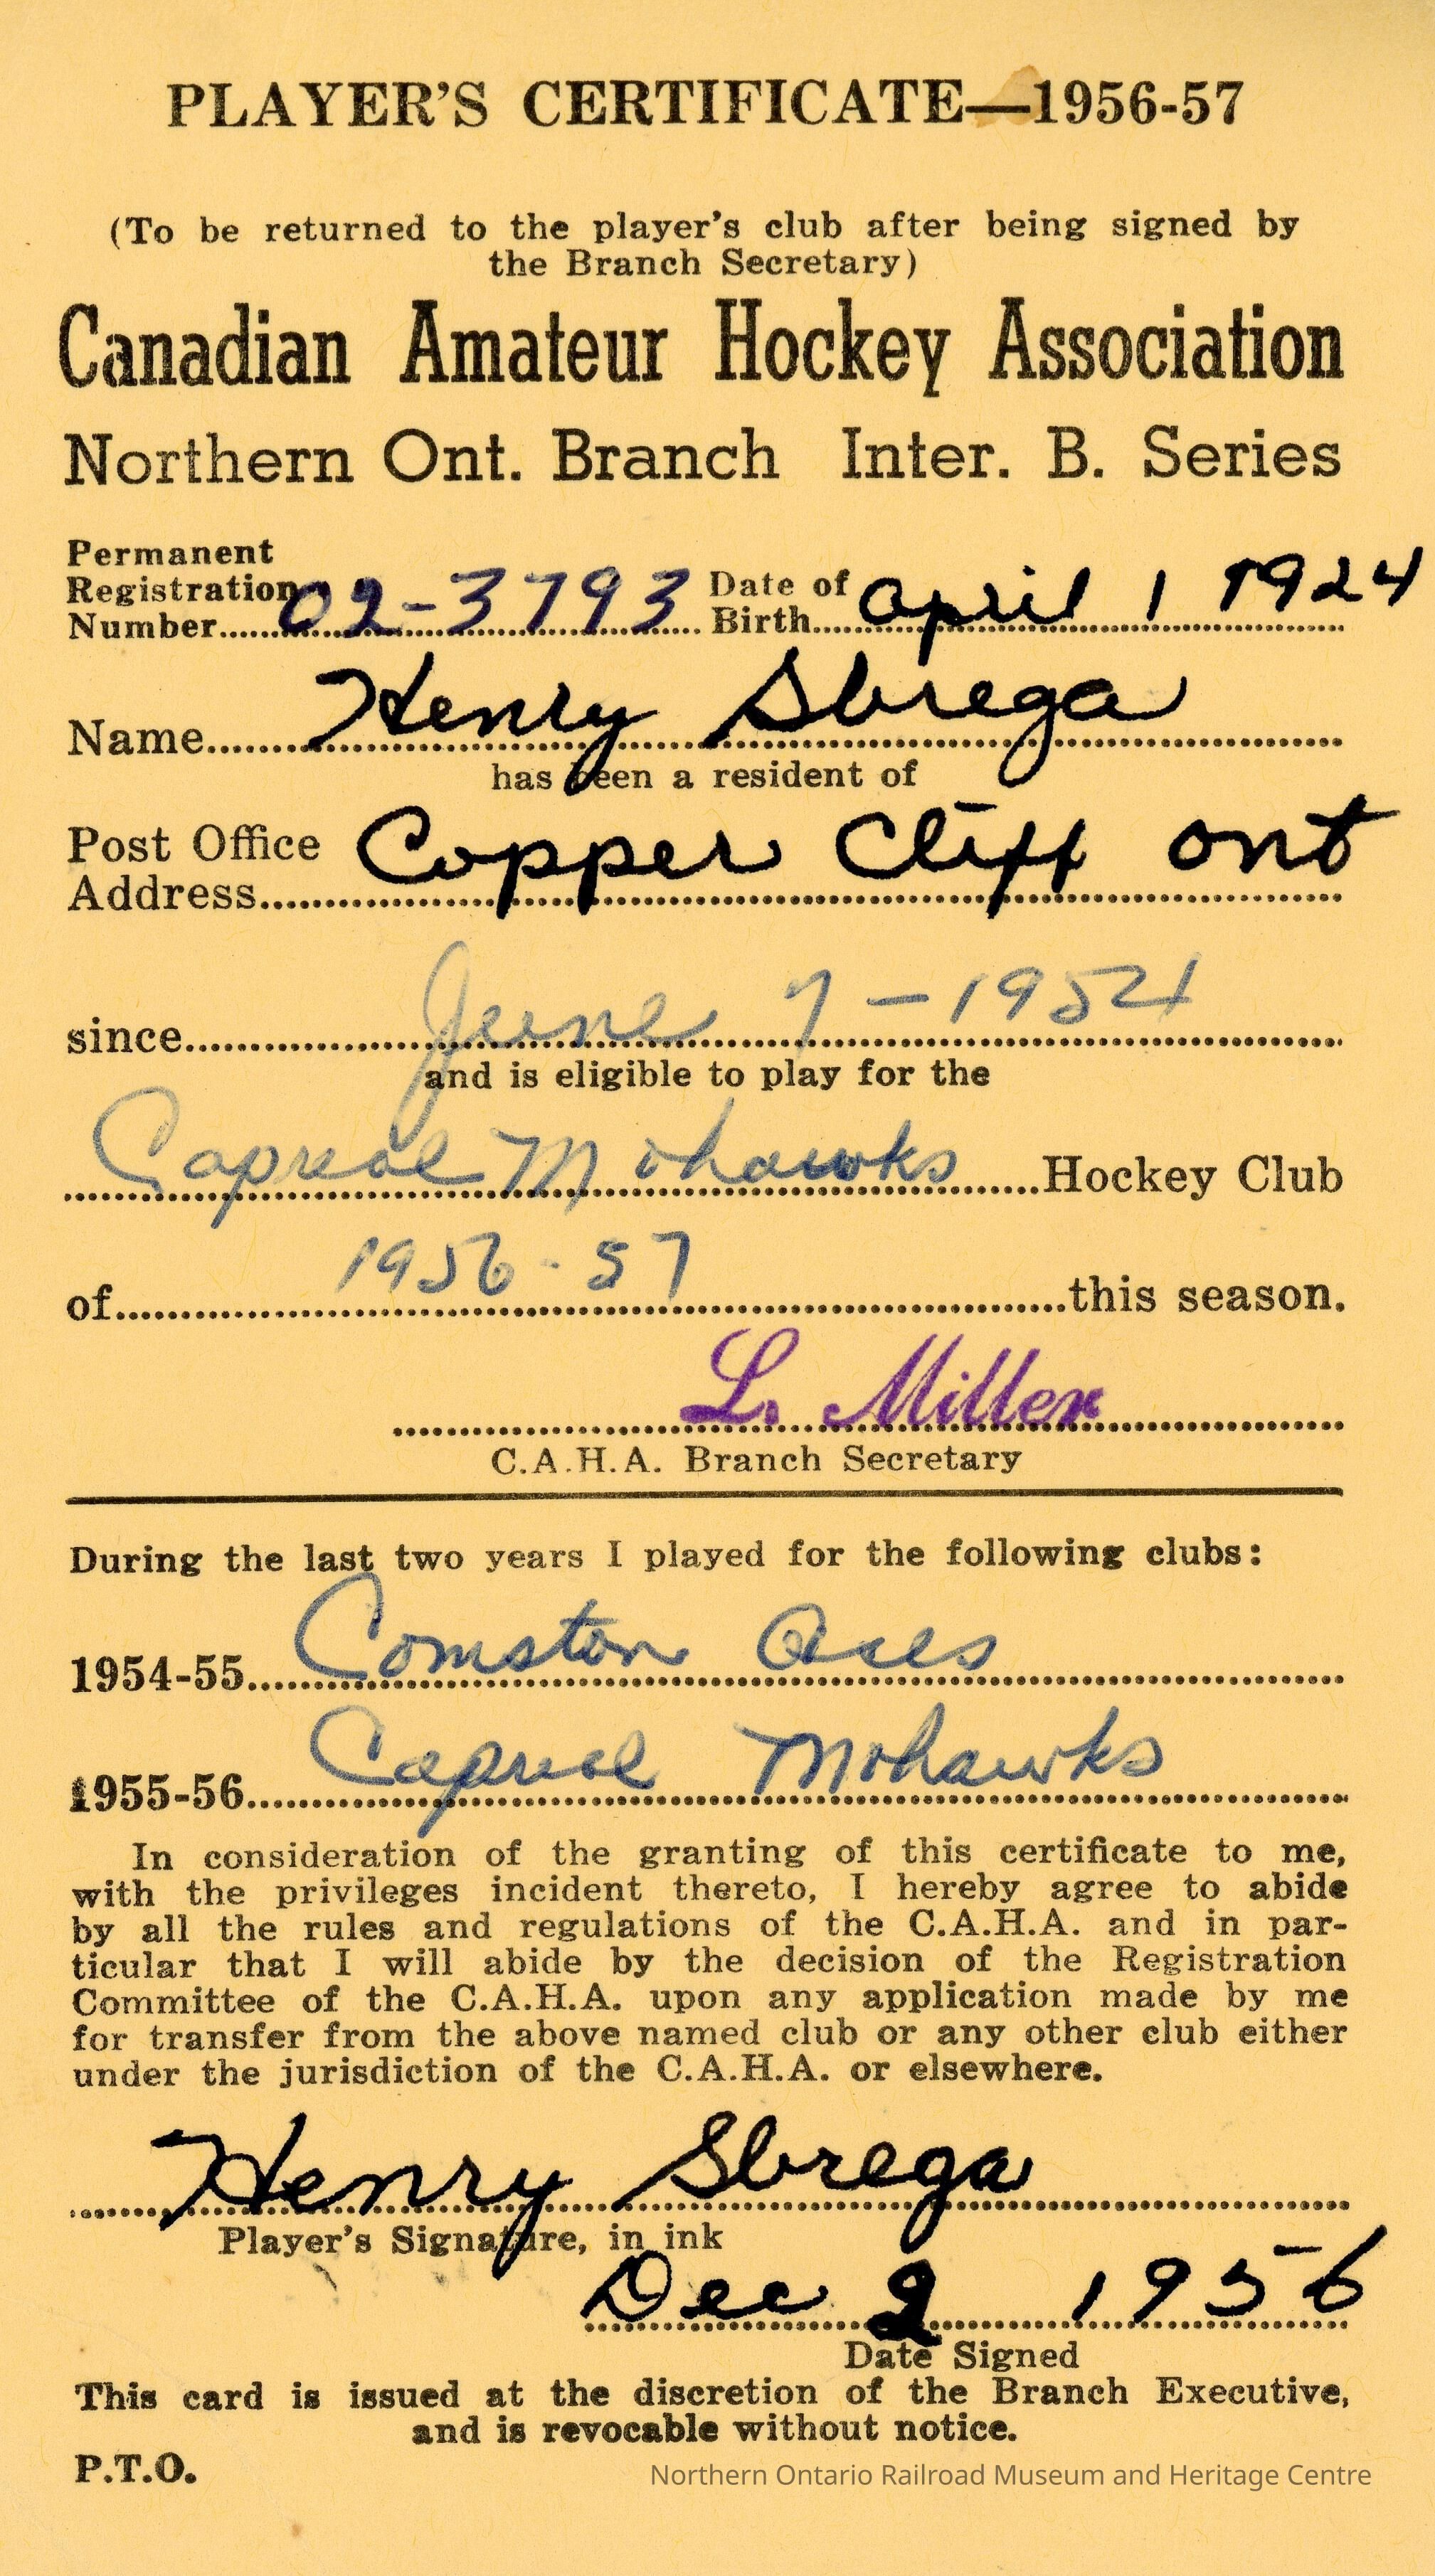 PLAYER'S CERTIFICATE—1956-57
(To be returned to the player's club after being signed by
the Branch Secretary)
Canadian Amateur Hockey Association
Northern Ont. Branch Inter. B. Series
Permanent
Registration
Number 02-3793 Date of
Birth April 1 1924
Name Henry Sbrega
has been a resident of
Post Office
Address Copper Cliff ont
since June 7-1954
and is eligible to play for the
Capreol Mohawks Hockey Club
of 1956-57 this season.
L. Miller
C.A.H.A. Branch Secretary
During the last two years I played for the following clubs:
1954-55 Comston Aces
1955-56 Capreol Mohawks
In consideration of the granting of this certificate to me,
with the privileges incident thereto, I hereby agree to abide
by all the rules and regulations of the C.A.H.A. and in par-
ticular that I will abide by the decision of the Registration
Committee of the C.A.H.A. upon any application made by me
for transfer from the above named club or any other club either
under the jurisdiction of the C.A.H.A. or elsewhere.
Henry Sbrega
Player's Signature, in ink
Dec 2 1956
Date Signed
This card is issued at the discretion of the Branch Executive,
and is revocable without notice.
P.T.O.
Northern Ontario Railroad Museum and Heritage Centre